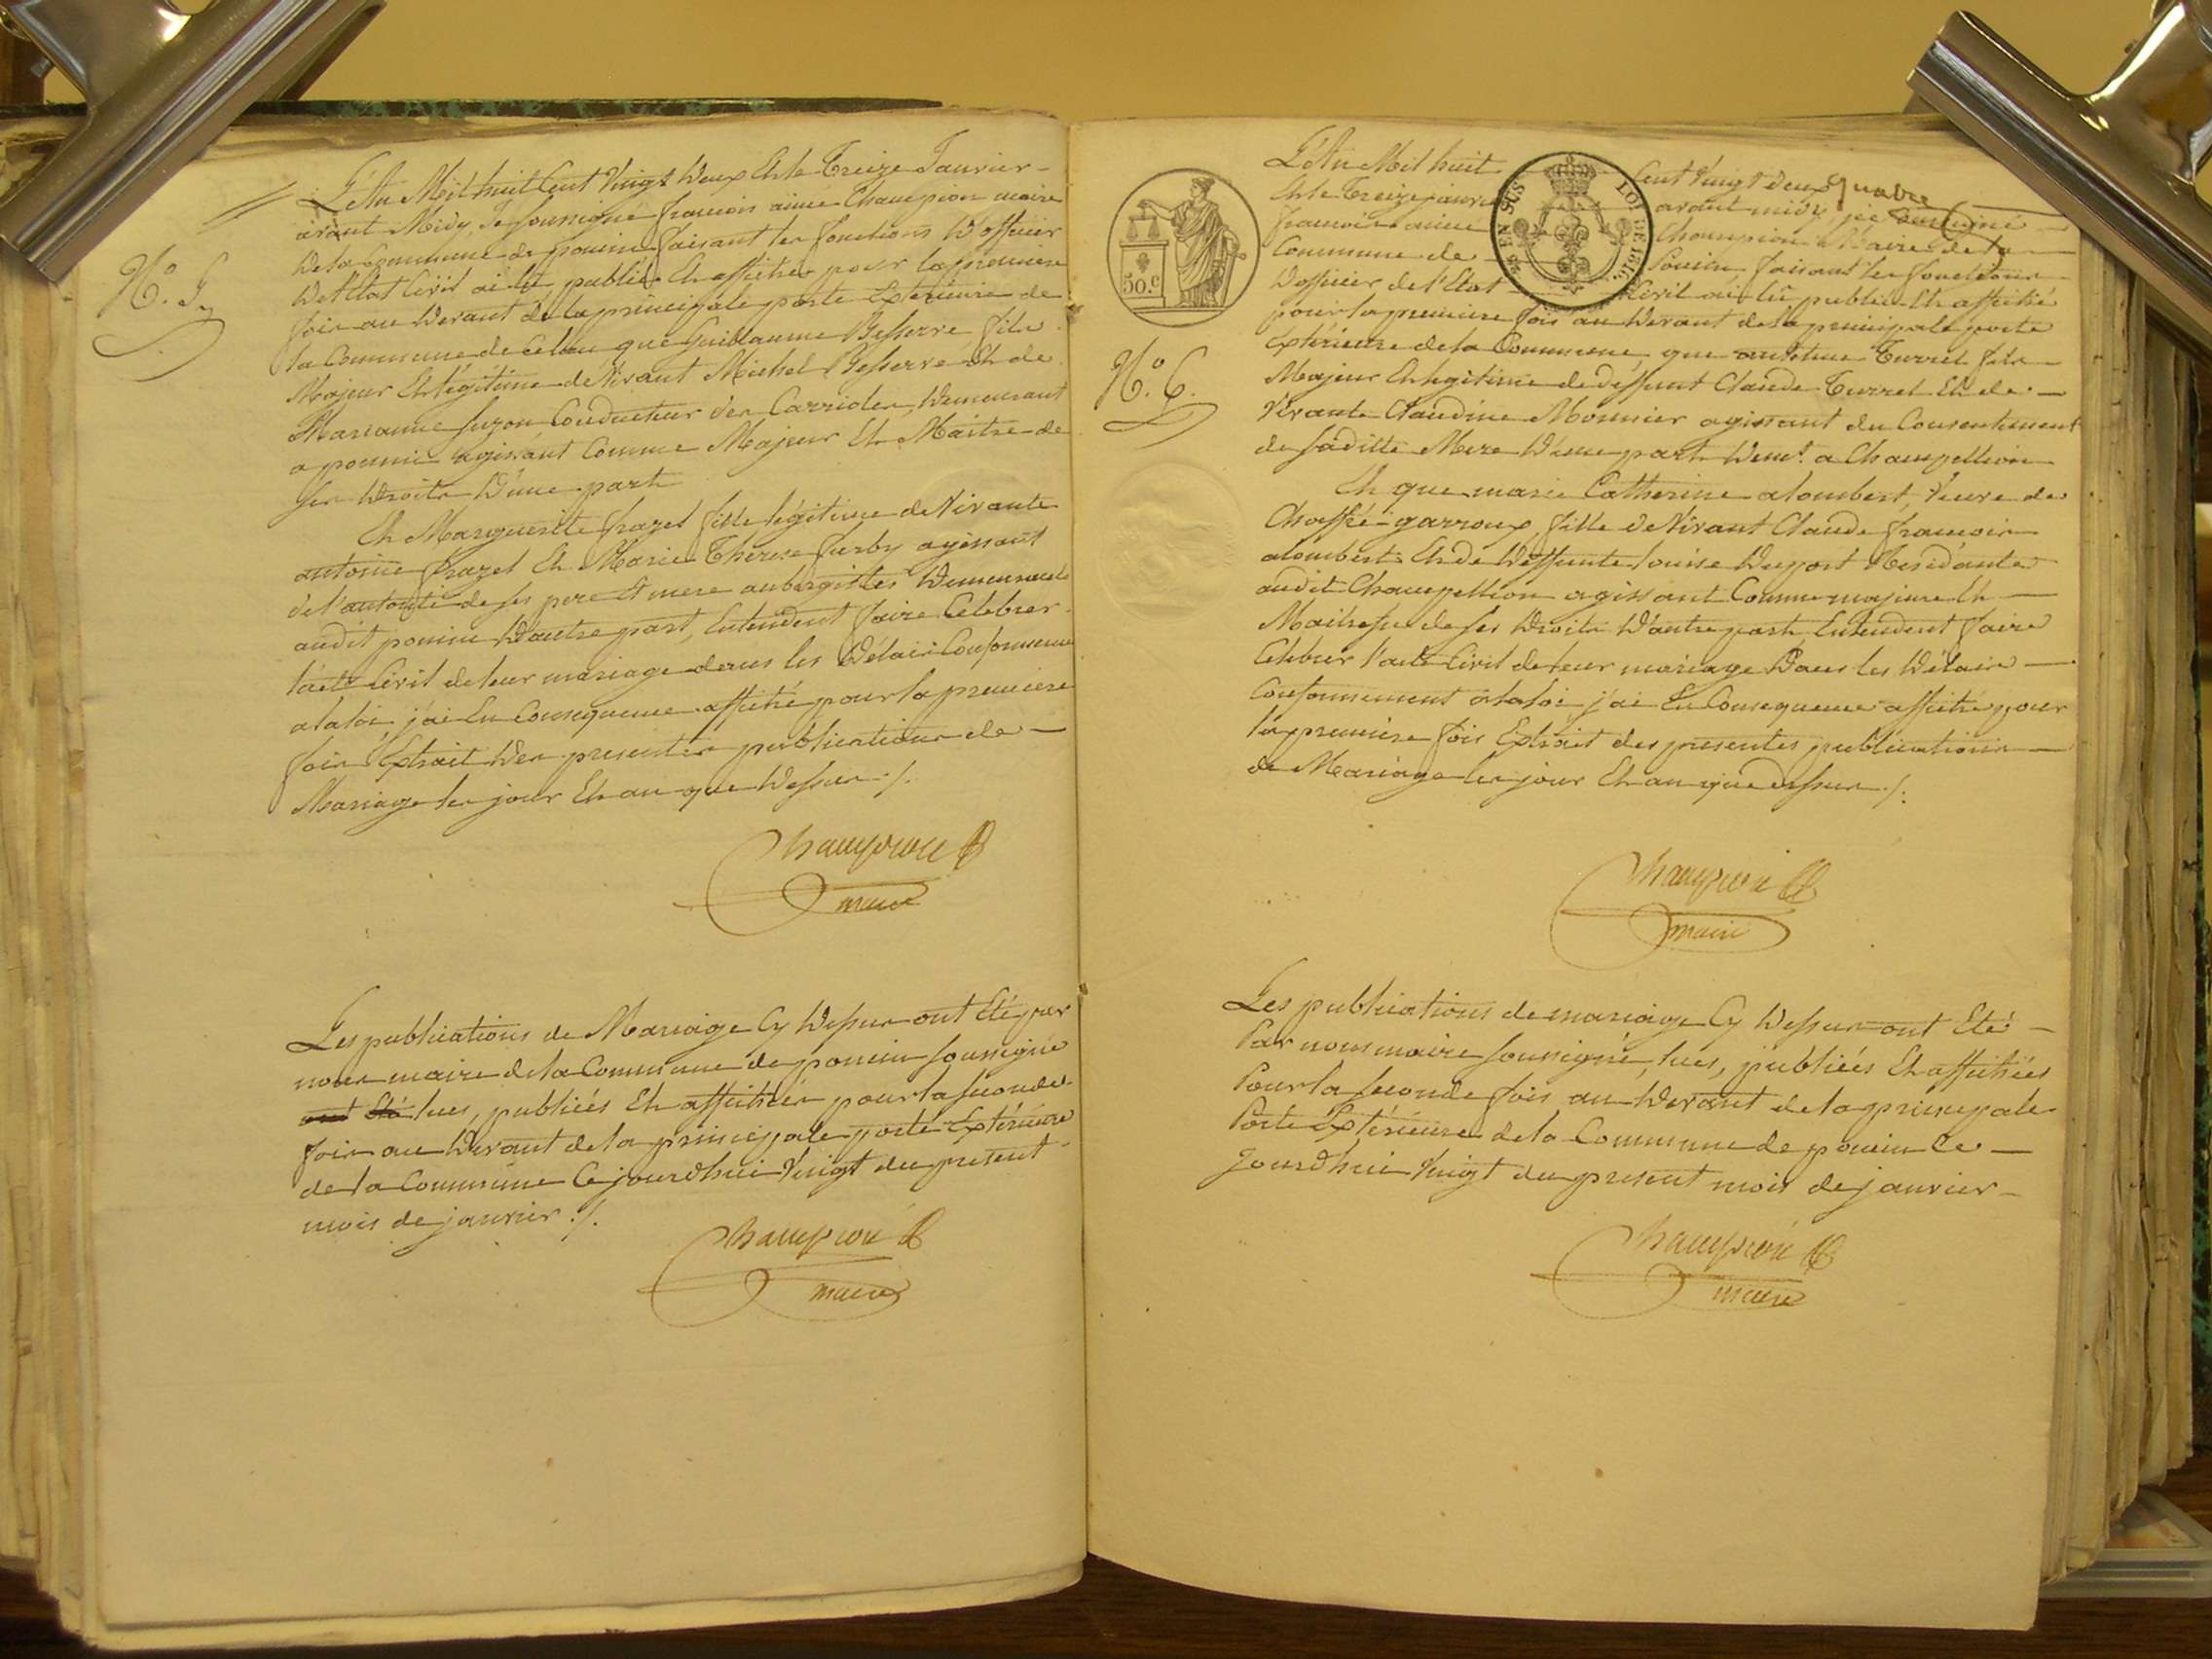 L'An Mil huit Cent Vingt Deux Et le Treize Janvier
avant Midy, Je soussigné françois aimé Champion maire
De la Commune de poncin faisant les fonctions D'officier
De l'Etat Civil ai lû publié Et affiché pour la premiere
N.º 5
fois au Devant de la principale porte Exterieure de
la Commune de Celieu que Guillaume Besserre fils
Majeur Et légitime de Vivant Michel Besserre Et de
Marianne Suzon Conducteur des Carrioles, Demeurant
a poncin agissant Comme Majeur Et Maitre de
ses Droits D'une part
Et Marguerite frazel fille légitime de Vivante
antoine frazel Et Marie Therese Furby agissant
de l'autorité de ses pere Et mere aubergistes Demeurants
audit poncin D'autre part, Entendent faire Celebrer
l'acte Civil de leur mariage dans les Délais Conformement
a la loi, j'ai En Consequence affiché pour la premiere
fois Extrait Des presentes publications de
Mariage les jour Et an que Dessus ./.
Champion
maire
Les publications de Mariage Cy Dessus ont Eté par
nous maire de la Commune de poncin soussigné
ont Eté lues, publiées Et affichées pour la seconde
fois au Devant de la principale porte Extérieure
de la Commune Cejourdhui Vingt du present
mois de janvier ./.
Champion
maire
L'An Mil huit Cent Vingt deux quatre
Et le Treize janvier avant midy, je soussigné
françois aimé Champion Maire de la
Commune de Poncin faisant les fonctions
D'officier de l'Etat Civil ai lû publié Et affiché
50.c
25 EN SUS
LOI DE 1816.
pour la premiere fois au Devant de la principale porte
N.º 6.
Extérieure de la Commune, que antoine Turrel fils
Majeur Et legitime de deffunt Claude Turrel Et de
Vivante Claudine Monnier agissant du Consentement
de saditte Mere D'une part Demt. a Champellion
Et que marie Catherine alombert, Veuve de
Choffré garroux, fille de Vivant Claude françois
alombert Et de Deffunte louise Dupont Residante
audit Champellion agissant Comme majeure Et
Maitresse de ses Droits D'autre part, Entendent faire
Celebrer l'acte Civil de leur mariage Dans les Délais
Conformement a la loi j'ai En Consequence affiché pour
la premiere fois Extrait des presentes publications
de Mariage les jour Et an que dessus ./.
Champion
maire
Les publications de mariage Cy Dessus ont Eté
Par nous maire soussigné, lues, publiées Et affichées
Pour la seconde fois au Devant de la principale
Porte Extérieure de la Commune de poncin Ce
jourdhui Vingt du present mois de janvier
Champion
maire